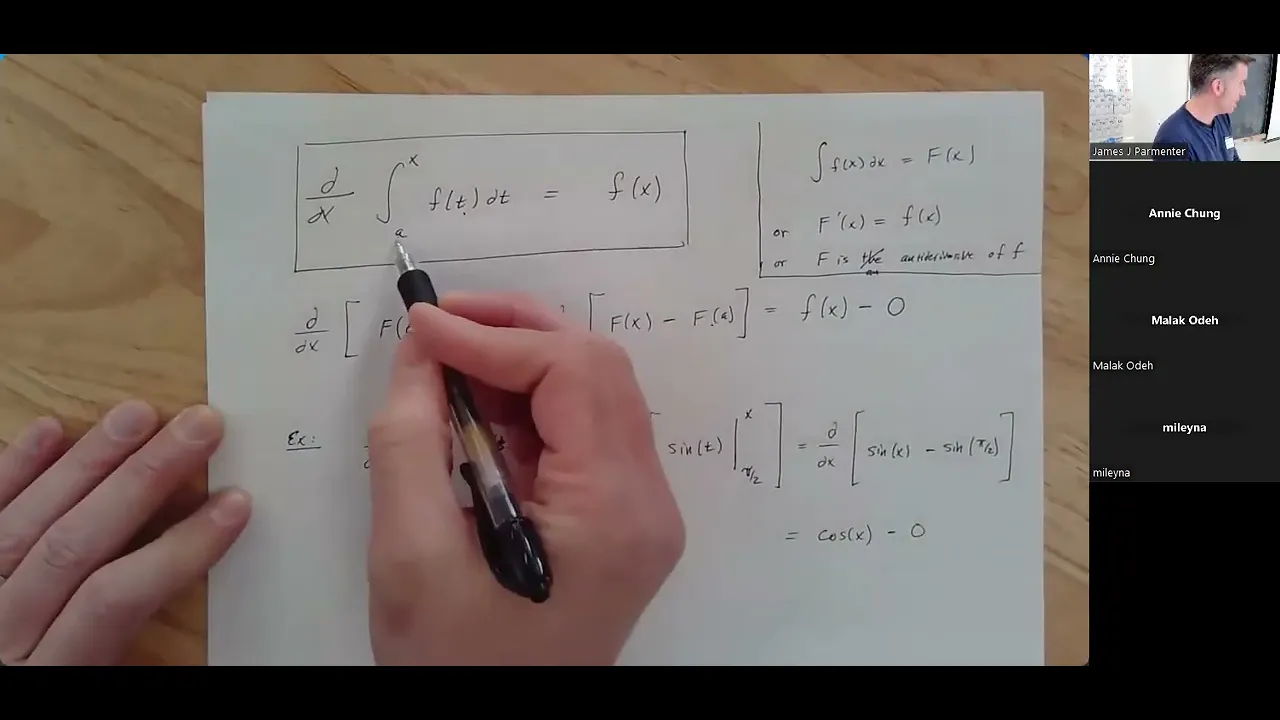 d/dx ∫_a^x f(t) dt = f(x)
∫ f(x) dx = F(x)
or F'(x) = f(x)
or F is the an antiderivative of f
d/dx [ F( [ F(x) - F(a) ] = f(x) - 0
Ex: sin(t) |_{π/2}^x ] = d/dx [ sin(x) - sin(π/2) ]
= cos(x) - 0
James J Parmenter
Annie Chung
Annie Chung
Malak Odeh
Malak Odeh
mileyna
mileyna